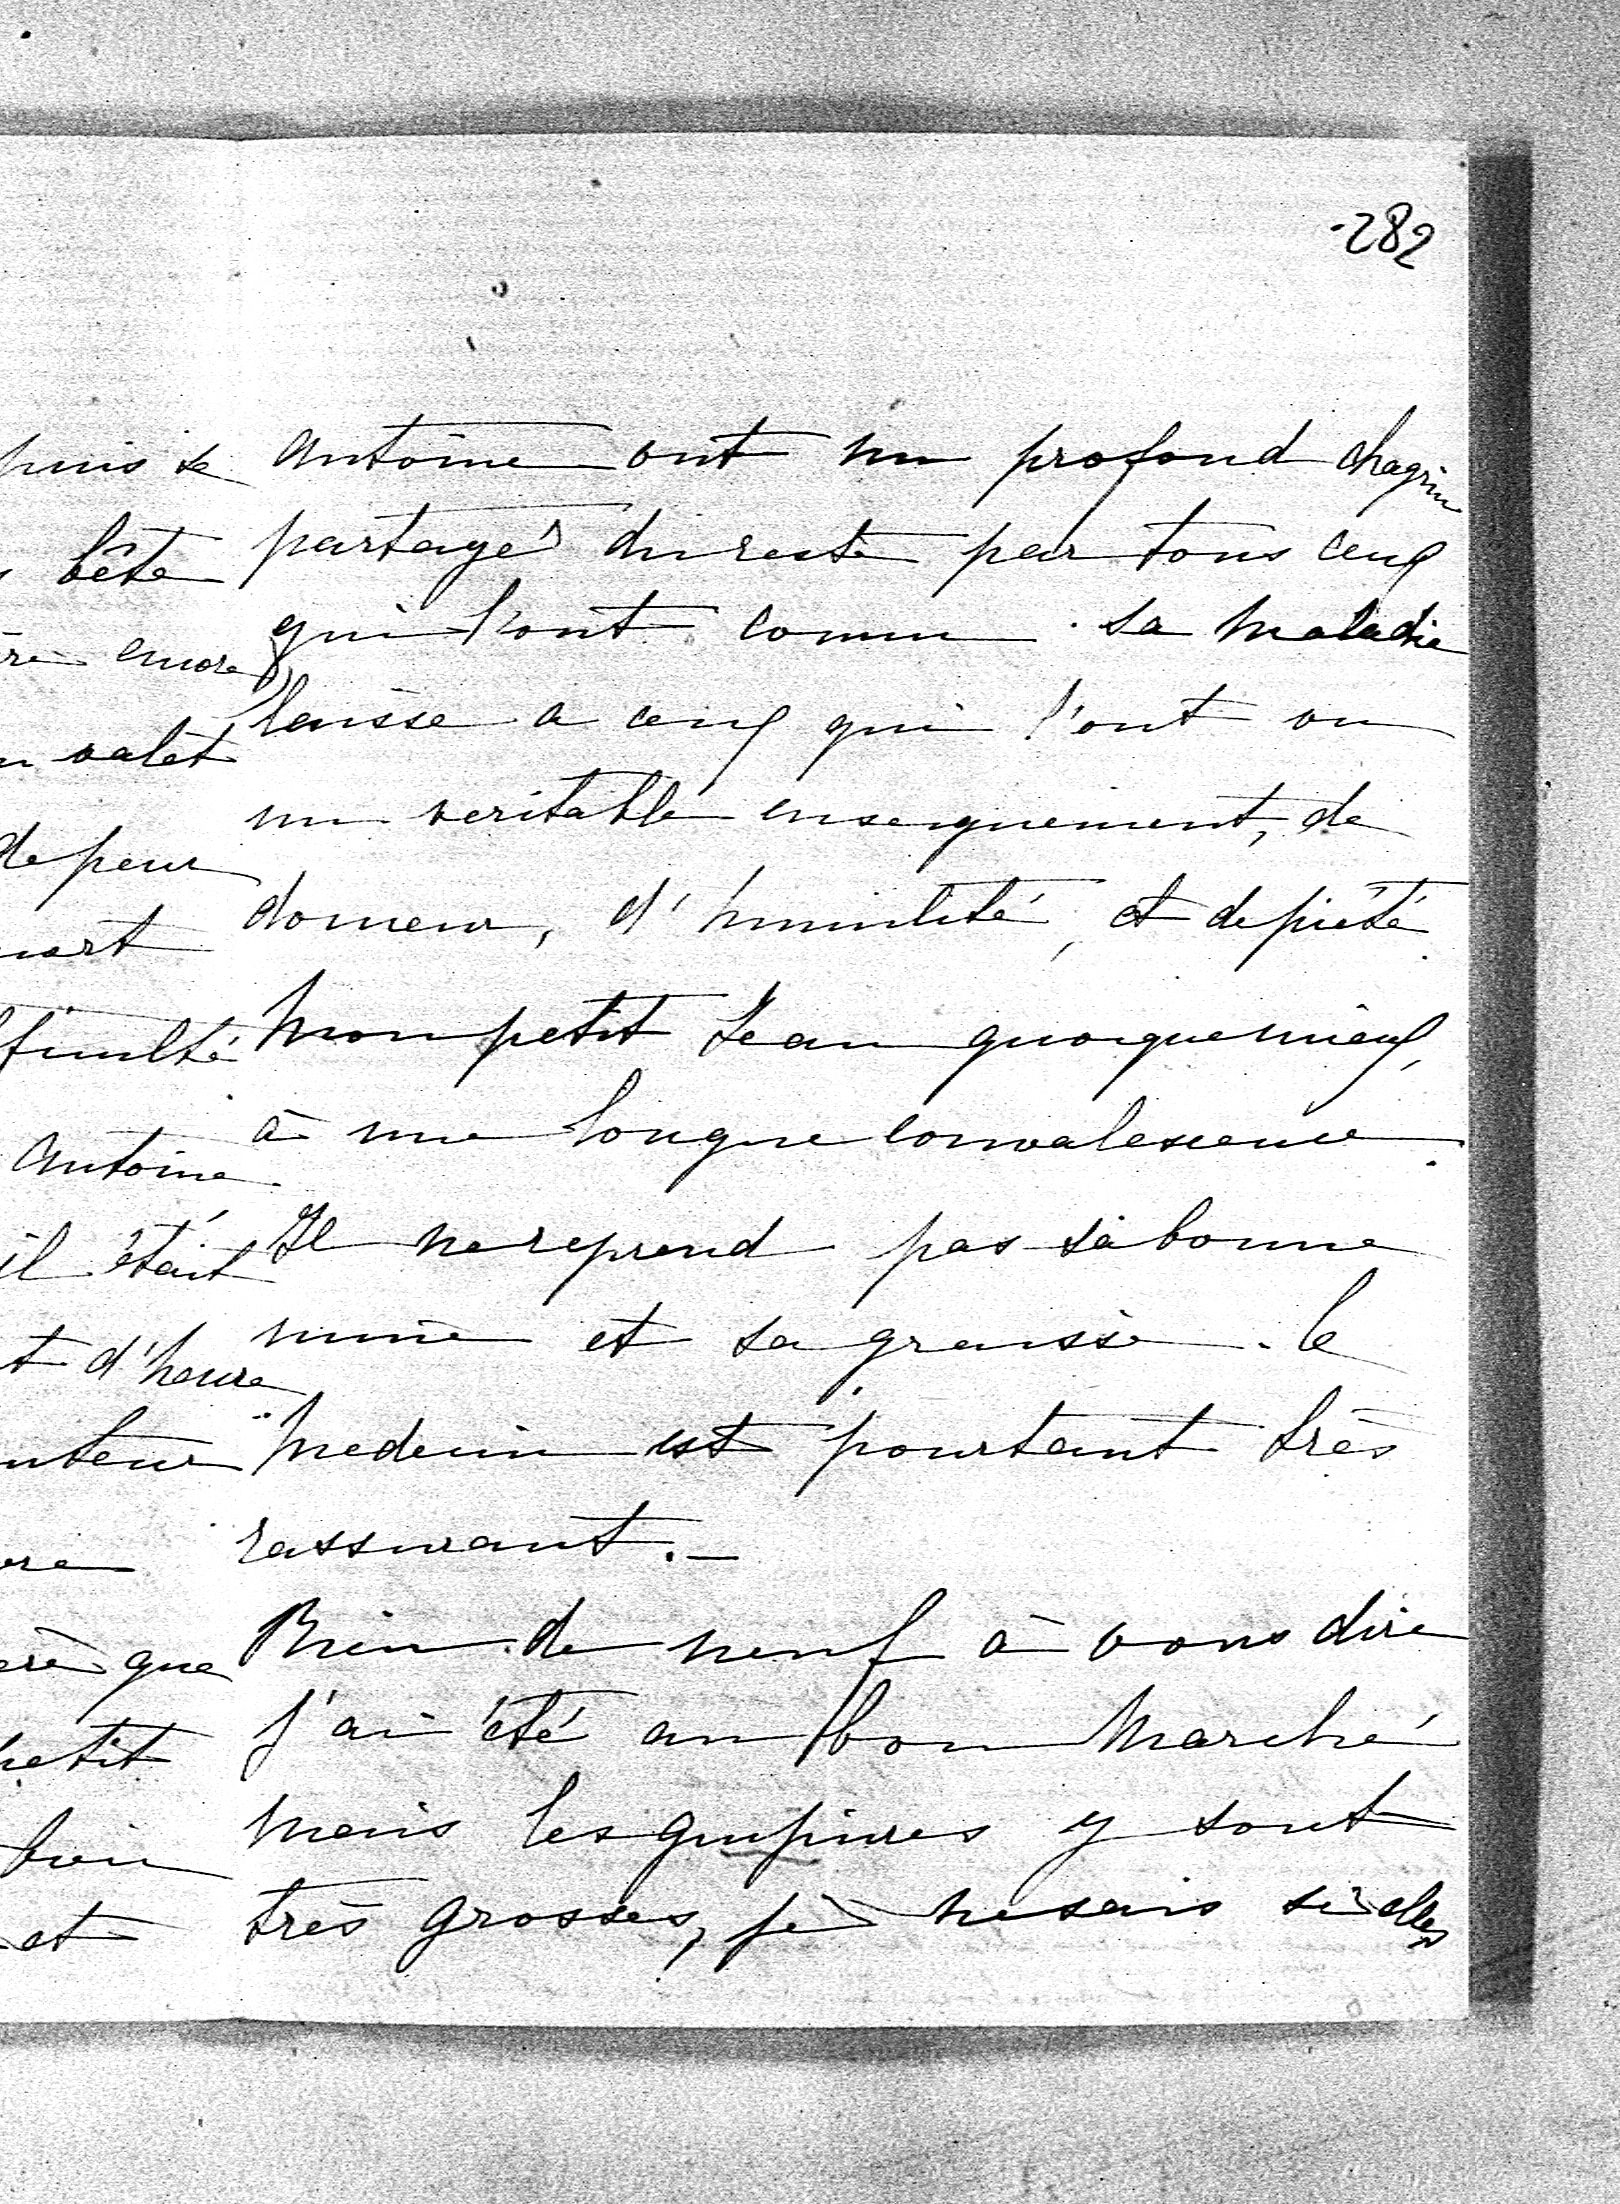 282
Antoine ont un profond chagrin
partagés du reste par tous ceux
qui l'ont connu. Sa maladie
laisse a ceux qui l'ont vu
un veritable enseignement, de
douceur, d'humilité, et de piété.
Mon petit Jean quoique mieux,
à une longue convalescence.
Il ne reprend pas sa bonne
mine et sa graisse. le
Medecin est pourtant très
rassurant. —
Rien de neuf à vous dire
J'ai été au bon Marché
mais les guipures y sont
très grosses, je ne sais si elles
puis se
bête
encore
valet
de peur
Antoine
il était
t d'heure
que
petit
bien
et